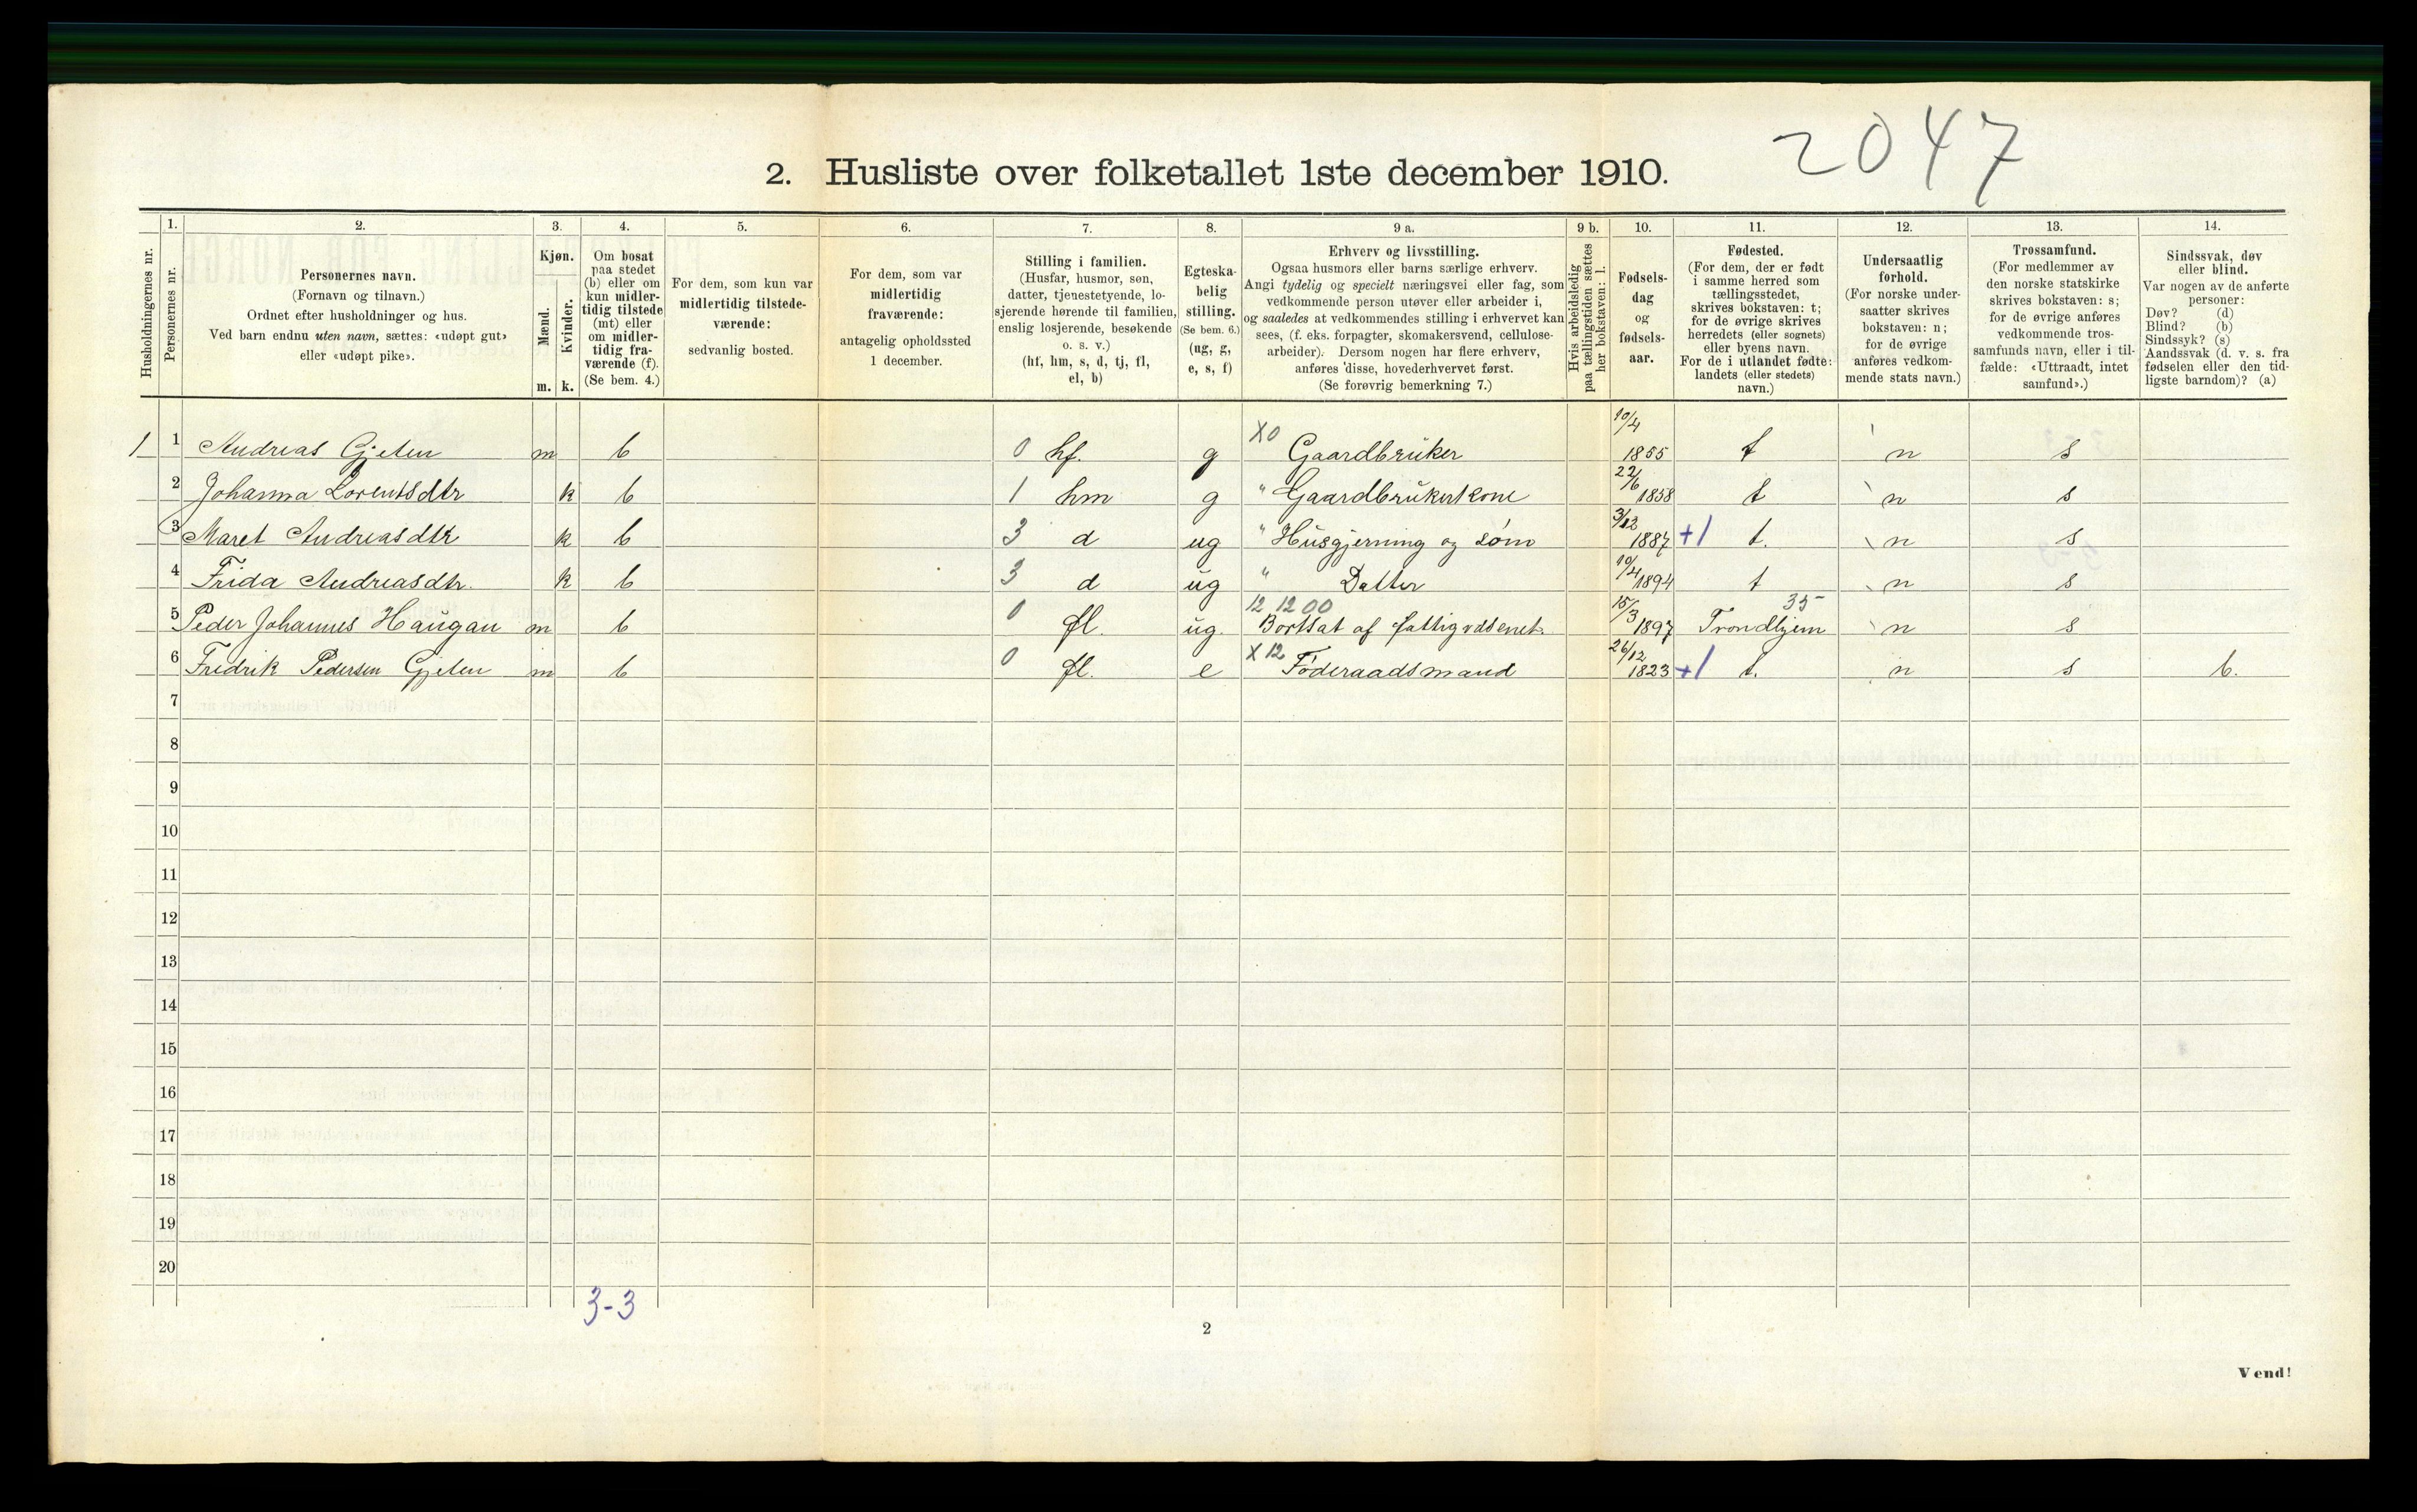 2047
2. Husliste over folketallet 1ste december 1910.
1. 2. 3. 4. 5. 6. 7. 8. 9 a. 9 b. 10. 11. 12. 13. 14.
Husholdningernes nr.
Personernes nr.
Personernes navn.
(Fornavn og tilnavn.)
Ordnet efter husholdninger og hus.
Ved barn endnu uten navn, sættes: «udøpt gut»
eller «udøpt pike».
Kjøn.
Mænd.
Kvinder.
m. k.
Om bosat
paa stedet
(b) eller om
kun midler-
tidig tilstede
(mt) eller
om midler-
tidig fra-
værende (f).
(Se bem. 4.)
For dem, som kun var
midlertidig tilstede-
værende:
sedvanlig bosted.
For dem, som var
midlertidig
fraværende:
antagelig opholdssted
1 december.
Stilling i familien.
(Husfar, husmor, søn,
datter, tjenestetyende, lo-
sjerende hørende til familien,
enslig losjerende, besøkende
o. s. v.)
(hf, hm, s, d, tj, fl,
el, b)
Egteska-
belig
stilling.
(Se bem. 6.)
(ug, g,
e, s, f)
Erhverv og livsstilling.
Ogsaa husmors eller barns særlige erhverv.
Angi tydelig og specielt næringsvei eller fag, som
vedkommende person utøver eller arbeider i,
og saaledes at vedkommendes stilling i erhvervet kan
sees, (f. eks. forpagter, skomakersvend, cellulose-
arbeider). Dersom nogen har flere erhverv,
anføres disse, hovederhvervet først.
(Se forøvrig bemerkning 7.)
Hvis arbeidsledig
paa tællingstiden sættes
her bokstaven: l.
Fødsels-
dag
og
fødsels-
aar.
Fødested.
(For dem, der er født
i samme herred som
tællingsstedet,
skrives bokstaven: t;
for de øvrige skrives
herredets (eller sognets)
eller byens navn.
For de i utlandet fødte:
landets (eller stedets)
navn.)
Undersaatlig
forhold.
(For norske under-
saatter skrives
bokstaven: n;
for de øvrige
anføres vedkom-
mende stats navn.)
Trossamfund.
(For medlemmer av
den norske statskirke
skrives bokstaven: s;
for de øvrige anføres
vedkommende tros-
samfunds navn, eller i til-
fælde: «Uttraadt, intet
samfund».)
Sindssvak, døv
eller blind.
Var nogen av de anførte
personer:
Døv? (d)
Blind? (b)
Sindssyk? (s)
Aandssvak (d. v. s. fra
fødselen eller den tid-
ligste barndom)? (a)
1 1 Andreas Gjeten m b 0 hf. g X0 Gaardbruker 10/4 1855 t n s
2 Johanna Lorentsdtr k b 1 hm g " Gaardbrukerkone 22/6 1858 t n s
3 Maret Andreasdtr k b 3 d ug " Husgjerning og søm 3/12 1887 +1 t. n s
4 Frida Andreasdtr. k b 3 d ug " Datter 10/4 1894 t n s
5 Peder Johannes Haugan m b 0 fl. ug. 12 1200 Bortsat af fattigvæsenet. 15/3 1897 35 Trondhjem n s
6 Fredrik Pedersen Gjeten m b 0 fl. e X 12 Føderaadsmand 26/12 1823 +1 t. n s b.
7
8
9
10
11
12
13
14
15
16
17
18
19
20
3-3
2
Vend!